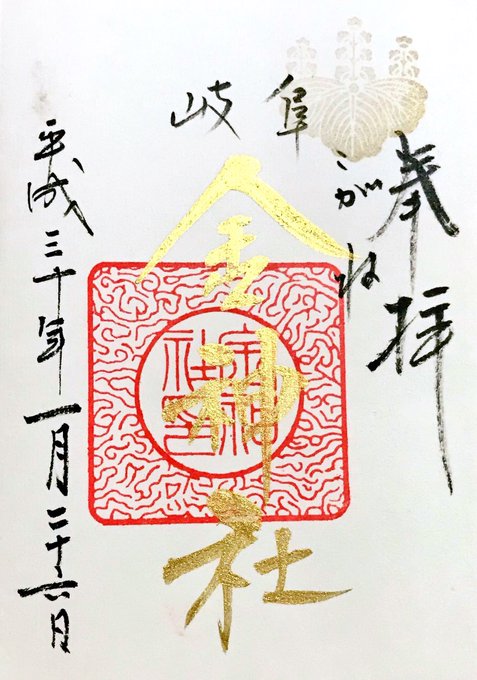 奉拝
岐阜
こがね
金神社
金神社印
平成三十年一月二十六日